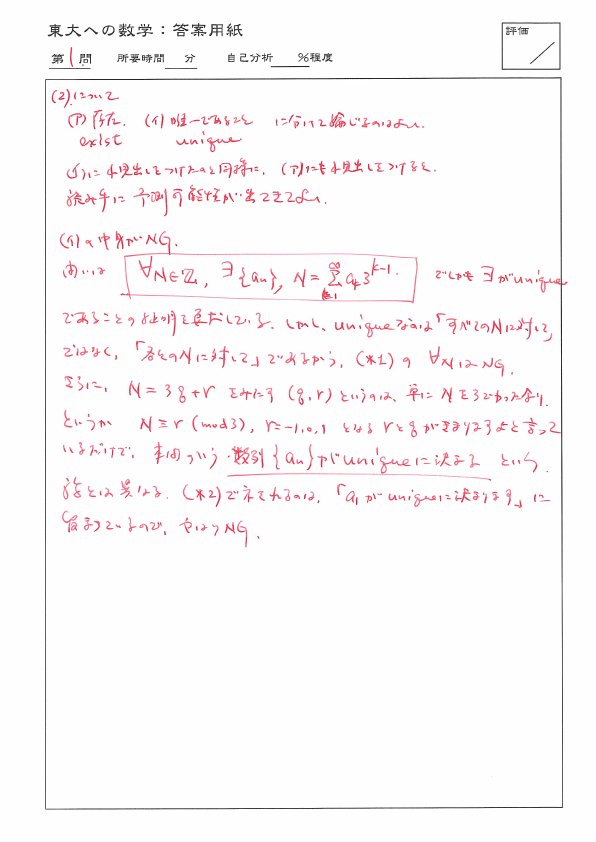 東大への数学：答案用紙
評価
第1問 所要時間 分 自己分析 %程度
(2)について
(ア)存在. (イ)唯一であること に分けて論じるのはよい.
exist unique
(イ)に小見出しをつけたのと同様に, (ア)にも小見出しをつけると,
読み手に予測可能性が出てきてよい.
(イ)の中身がNG.
問いは ∀N∈ℤ, ∃{an}, N = Σ_{k=1}^{∞} a_k 3^{k-1}. でしかも ∃がunique
であることの証明を要求している. しかし, uniqueなのは「すべてのNに対して」
ではなく, 「各々のNに対して」であるから, (*1)の ∀NはNG.
さらに, N = 3q + r をみたす (q, r) というのは, 単に Nを3でわった余り.
というか N≡r (mod3), r=-1,0,1 となる rとqがきまりますよと言って
いるだけで, 本問でいう 数列{an}がuniqueに決まる という
話とは異なる. (*2)で示せるのは, 「a1がuniqueに決まります」に
留まっているので, やはりNG.